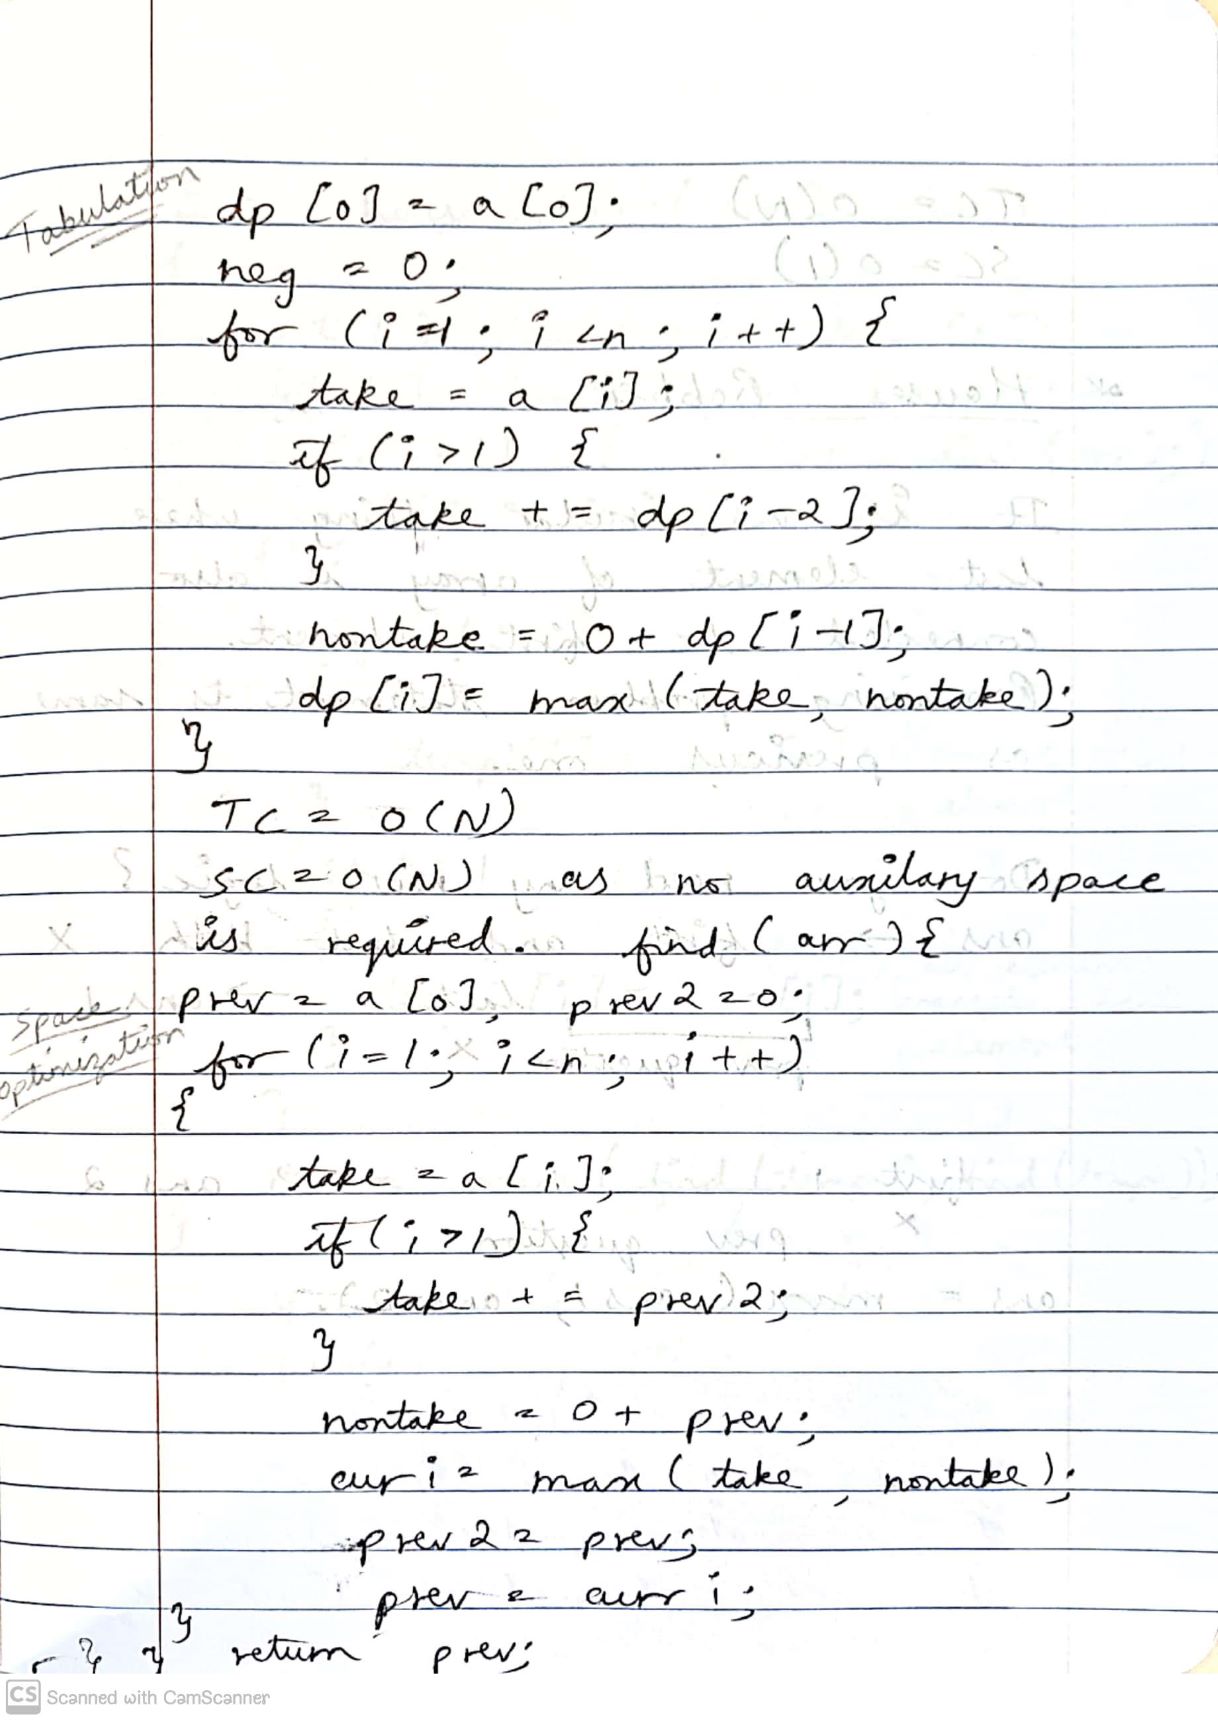 Tabulation
dp [0] = a [0];
neg = 0;
for (i=1; i<n; i++) {
take = a [i];
if (i>1) {
take += dp [i-2];
}
nontake = 0+ dp [i-1];
dp [i] = max (take, nontake);
}
TC = O(N)
SC = O(N) as no auxilary space
is required. find (arr) {
prev = a [0], prev2 = 0;
Space optimization
for (i=1; i<n; i++)
{
take = a [i];
if (i>1) {
take += prev2;
}
nontake = 0+ prev;
cur i = max (take, nontake);
prev2 = prev;
prev = curr i;
}
} } return prev;
CS Scanned with CamScanner